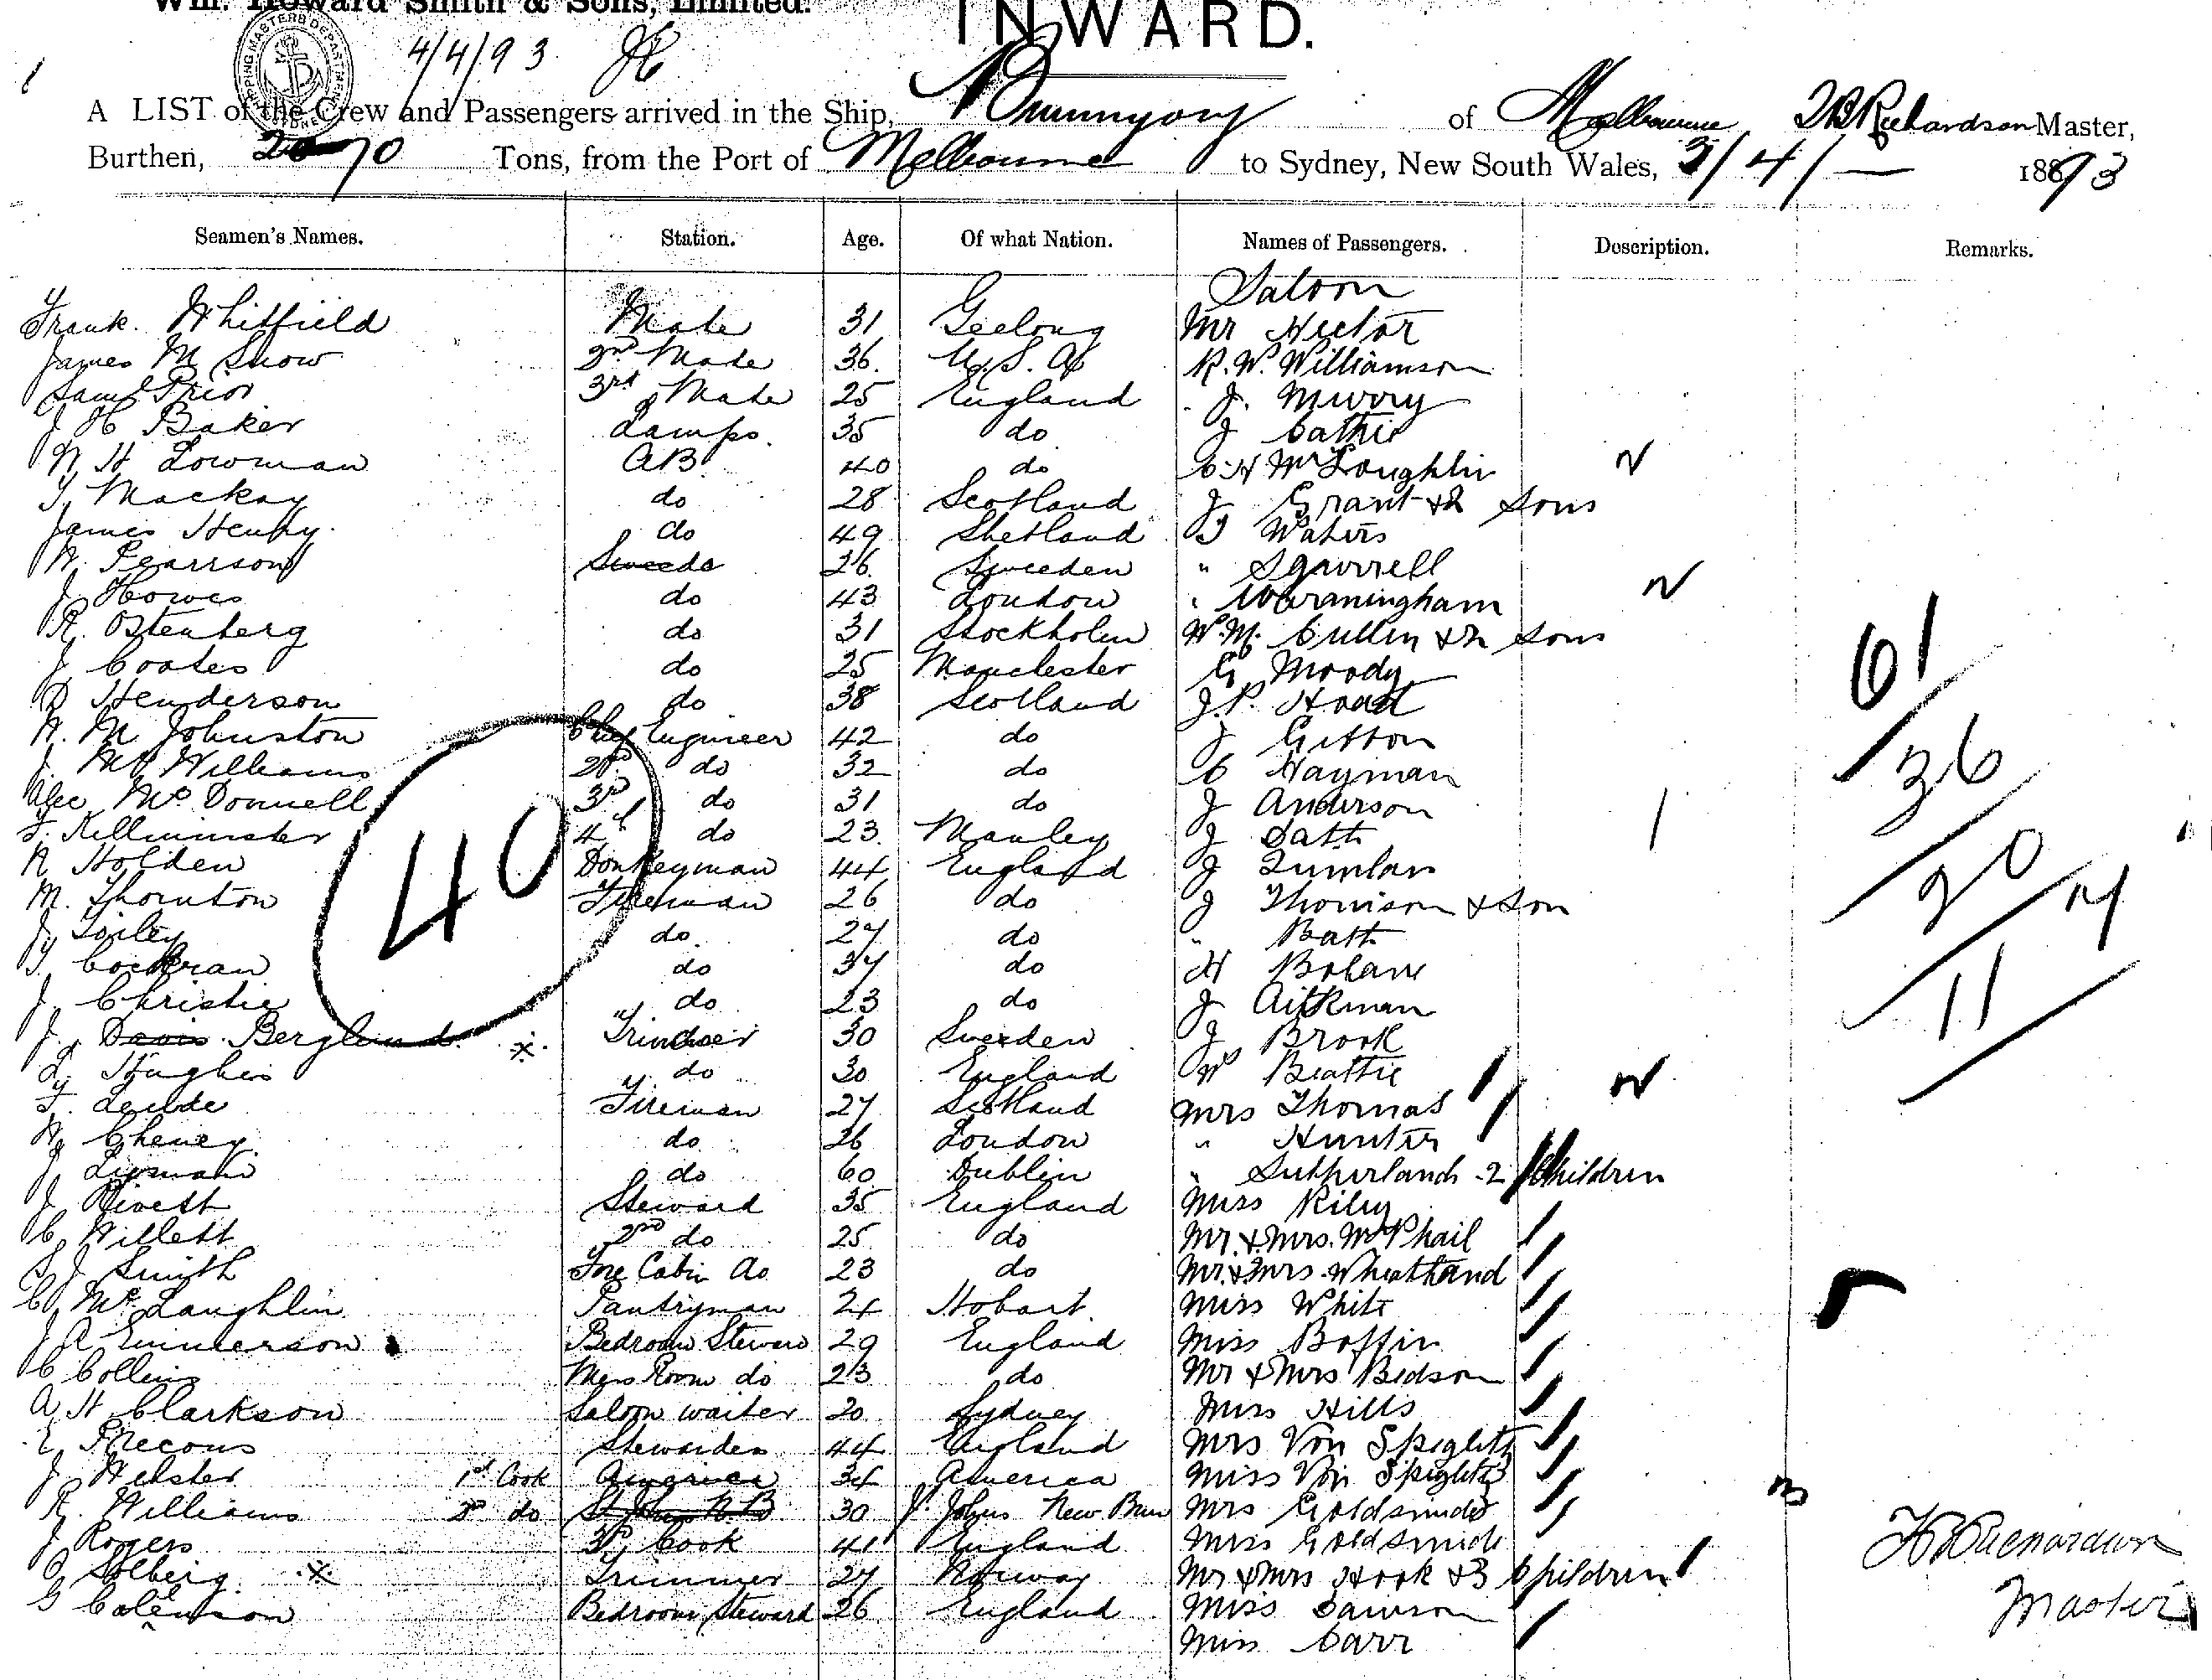 Wm. Howard Smith & Sons, Limited.
INWARD.
4/4/93
A LIST of the Crew and Passengers arrived in the Ship, Bunnyong of Melbourne Richardson Master,
Burthen, 2070 Tons, from the Port of Melbourne to Sydney, New South Wales, 3/4/— 1893
Seamen's Names. Station. Age. Of what Nation. Names of Passengers. Description. Remarks.
Saloon
Frank Whitfield Mate 31 Geelong Mr Hector
James M Snow 2nd Mate 36 U.S.A R.W. Williamson
Saml Prior 3rd Mate 25 England J.
J H Baker Lamps. 35 do J Cathie
W H Lowman AB 40 do C H McLoughlin
T Mackay do 28 Scotland J Grant & 2 Sons
James Henry do 49 Shetland T Waters
W. Pearrson Sweede 26 Sweeden " Squirrell
J. Howes do 43 London " Warmingham
R. Ostenberg do 31 Stockholm W.M. Cullen & 2 Sons
J Coates do 25 Manchester G Moody
D Henderson do 38 Scotland J.P. Hoad
A. M Johnston Chief Engineer 42 do J Gibbon
J. McWilliams 2nd do 32 do C Hayman
Alec McDonnell 3rd do 31 do J Anderson
F. Killminster 4th do 23 Manley J Batt
A Holden Donkeyman 44 England J Quinlan
M. Thornton Fireman 26 do J Thomson & Son
J. do 27 do " Batt
T. Cochran do 37 do H Bolane
J. Christie do 23 do J Aitkman
J. Davis Berglund * Trimmer 30 Sweden J Brook
L. Hughes do 30 England W Beattie
F. Fireman 27 Scotland Mrs Thomas
W. Cheney do 26 London " Hunter
J. do 60 Dublin " Sutherland 2 Children
J Rivett Steward 35 England Miss Riley
C. Willett 2nd do 25 do Mr & Mrs. McPhail
S J Smith Fore Cabin do 23 do Mr & Mrs.
C. McLaughlin Pantryman 24 Hobart Miss White
J A Emmerson Bedroom Steward 29 England Miss Boffin
C Collins Mess Room do 23 do Mr & Mrs Bedson
A H Clarkson Saloon waiter 20 Sydney Miss Hills
E. Stewardess 44 England Mrs Von
J. Webster 1st Cook America 34 America Miss Von
R. Williams 2nd do St Johns N.B 30 St Johns New Brun Mrs Goldsmide
J Rogers 3rd Cook 41 England Miss Goldsmide
O. Solberg * Trimmer 27 Norway Mr & Mrs Hook & 3 Children
G Colemson Bedroom Steward 26 England Miss Dawson
Miss Carr
40
61
36
20
11
Richardson
Master